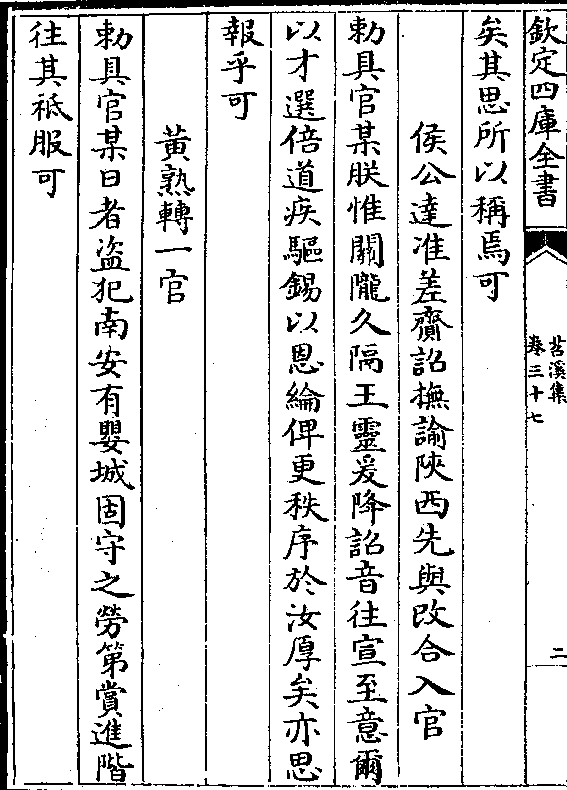 欽定四庫全書
苕溪集
卷三十七
二
矣其思所以稱焉可
侯公達准差齎詔撫諭陜西先與改合入官
勅具官某朕惟關隴久隔王靈爰降詔音往宣至意爾
以才選倍道疾驅錫以恩綸俾更秩序於汝厚矣亦思
報乎可
黄熟轉一官
勅具官某日者盗犯南安有嬰城固守之勞第賞進階
往其祗服可